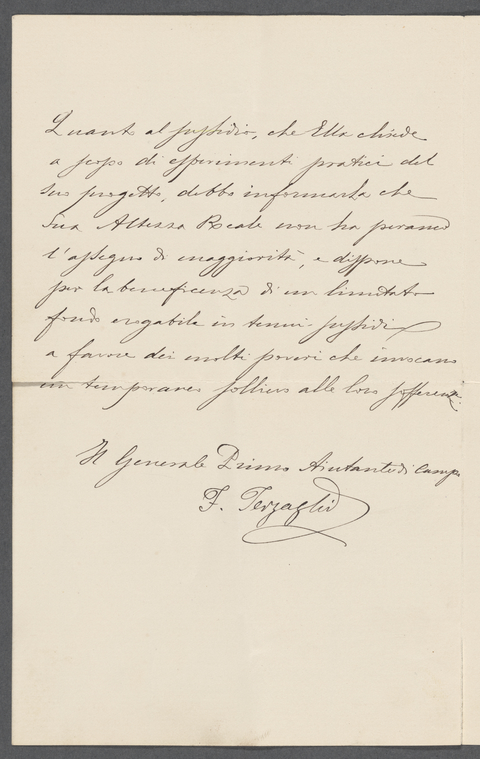 Quanto al sussidio, che Ella chiede
a scopo di esperimenti pratici del
suo progetto, debbo informarla che
Sua Altezza Reale non ha peranco
l'assegno di maggiorità, e dispone
per la beneficenza di un limitato
fondo erogabile in tenui sussidi
a favore dei molti poveri che invocano
un temporaneo sollievo alle loro sofferenze.
Il Generale Primo Aiutante di Campo
F. Terzaghi